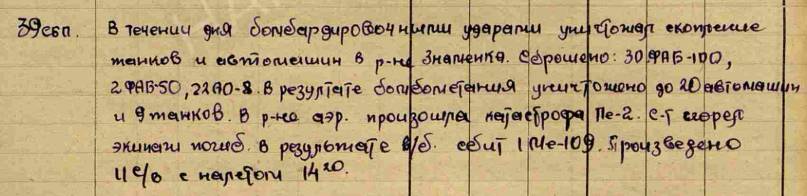 39 сбп. В течении дня бомбардировочными ударами уничтожал скопление
танков и автомашин в р-не Знаменка. Сброшено: 30 ФАБ-100,
2 ФАБ-50, 22 АО-8. В резултате бомбометания уничтожено до 20 автомашин
и 9 танков. В р-не аэр. произошла катастрофа Пе-2. С-т сгорел
экипаж погиб. В результате в/б. сбит 1 Ме-109. Произведено
11 с/в с налетом 14²⁰.